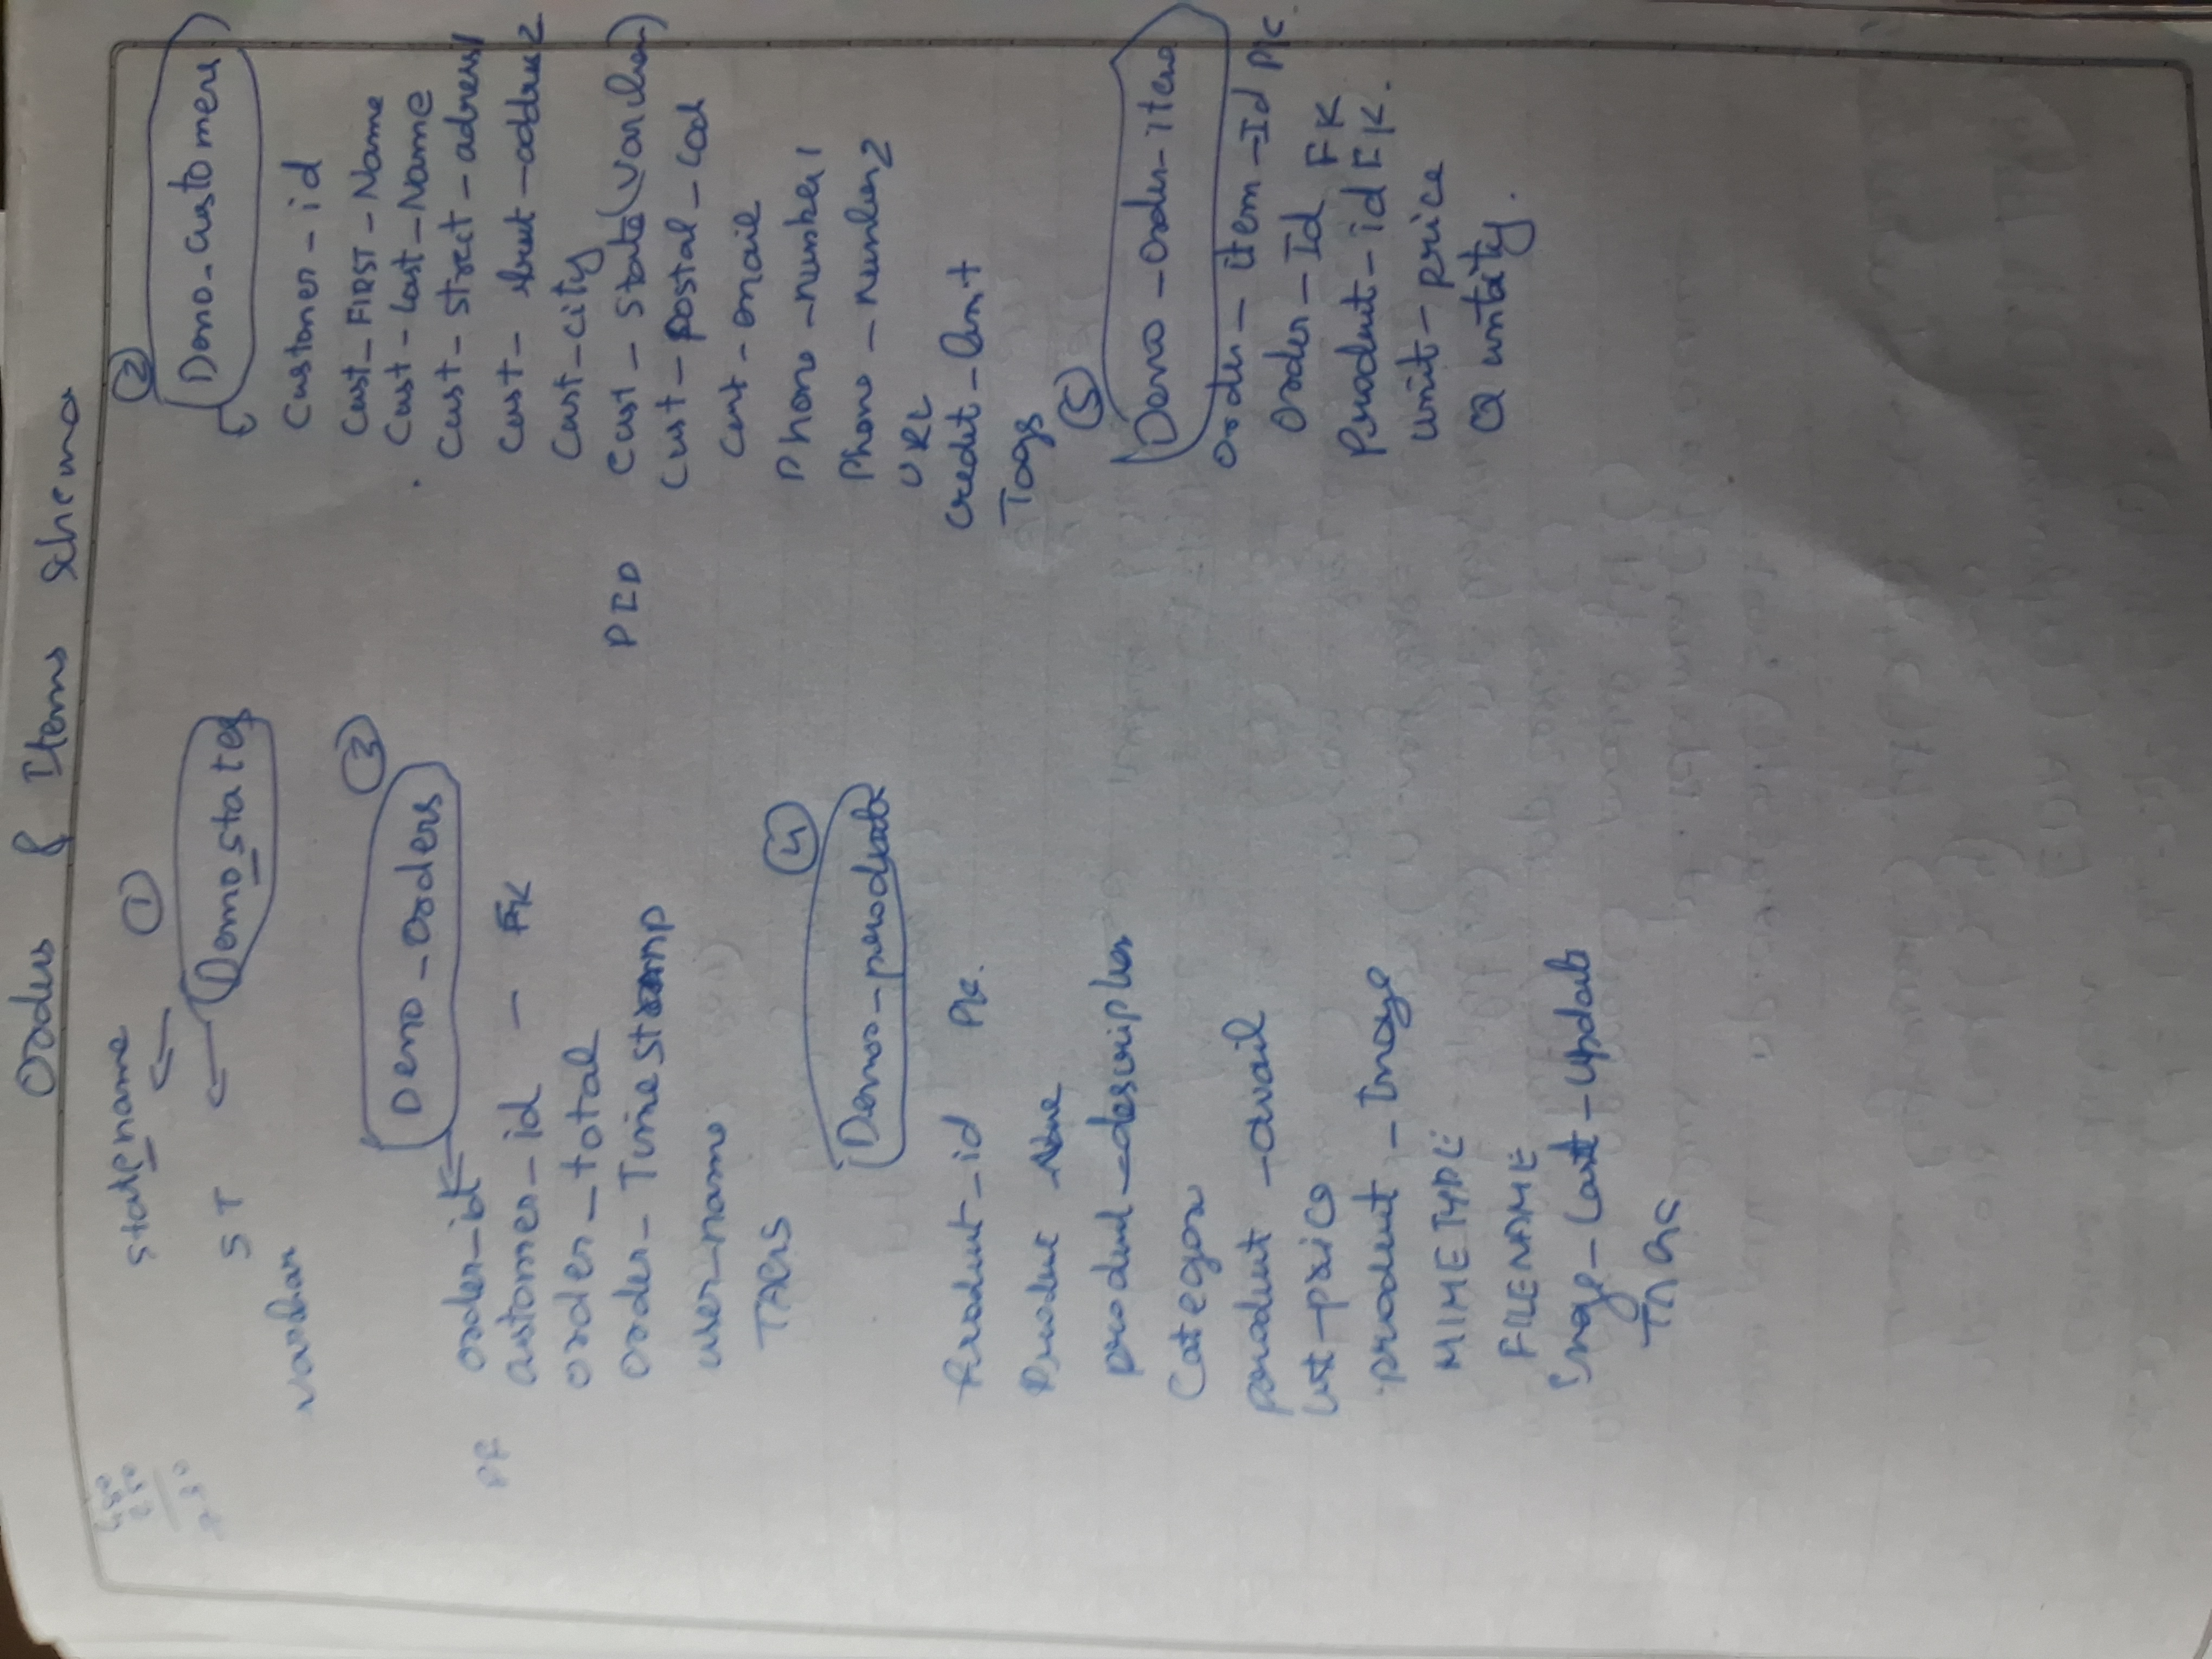 Orders & Items Schema
①
state_name
Demo_states
ST
varchar
②
Demo_customers
Customer_id
Cust_FIRST_Name
Cust_Last_Name
Cust_street_adress1
Cust_street_address2
Cust_city
Cust_state(varchar)
Cust_postal_cod
Cust_email
Phone_number1
Phone_number2
URL
Credit_limit
Tags
③
Demo_orders
order_id
customer_id - FK
order_total
order_Timestamp
user_name
TAGS
④
Demos_products
Product_id PK.
Product_Name
product_description
Category
product_avail
list_price
product_Image
MIMETYPE
FILENAME
Image_Last_Update
TAGS
⑤
Demo_Order_items
Order_item_Id PK.
Order_Id FK
Product_id FK.
unit_price
Quntity.